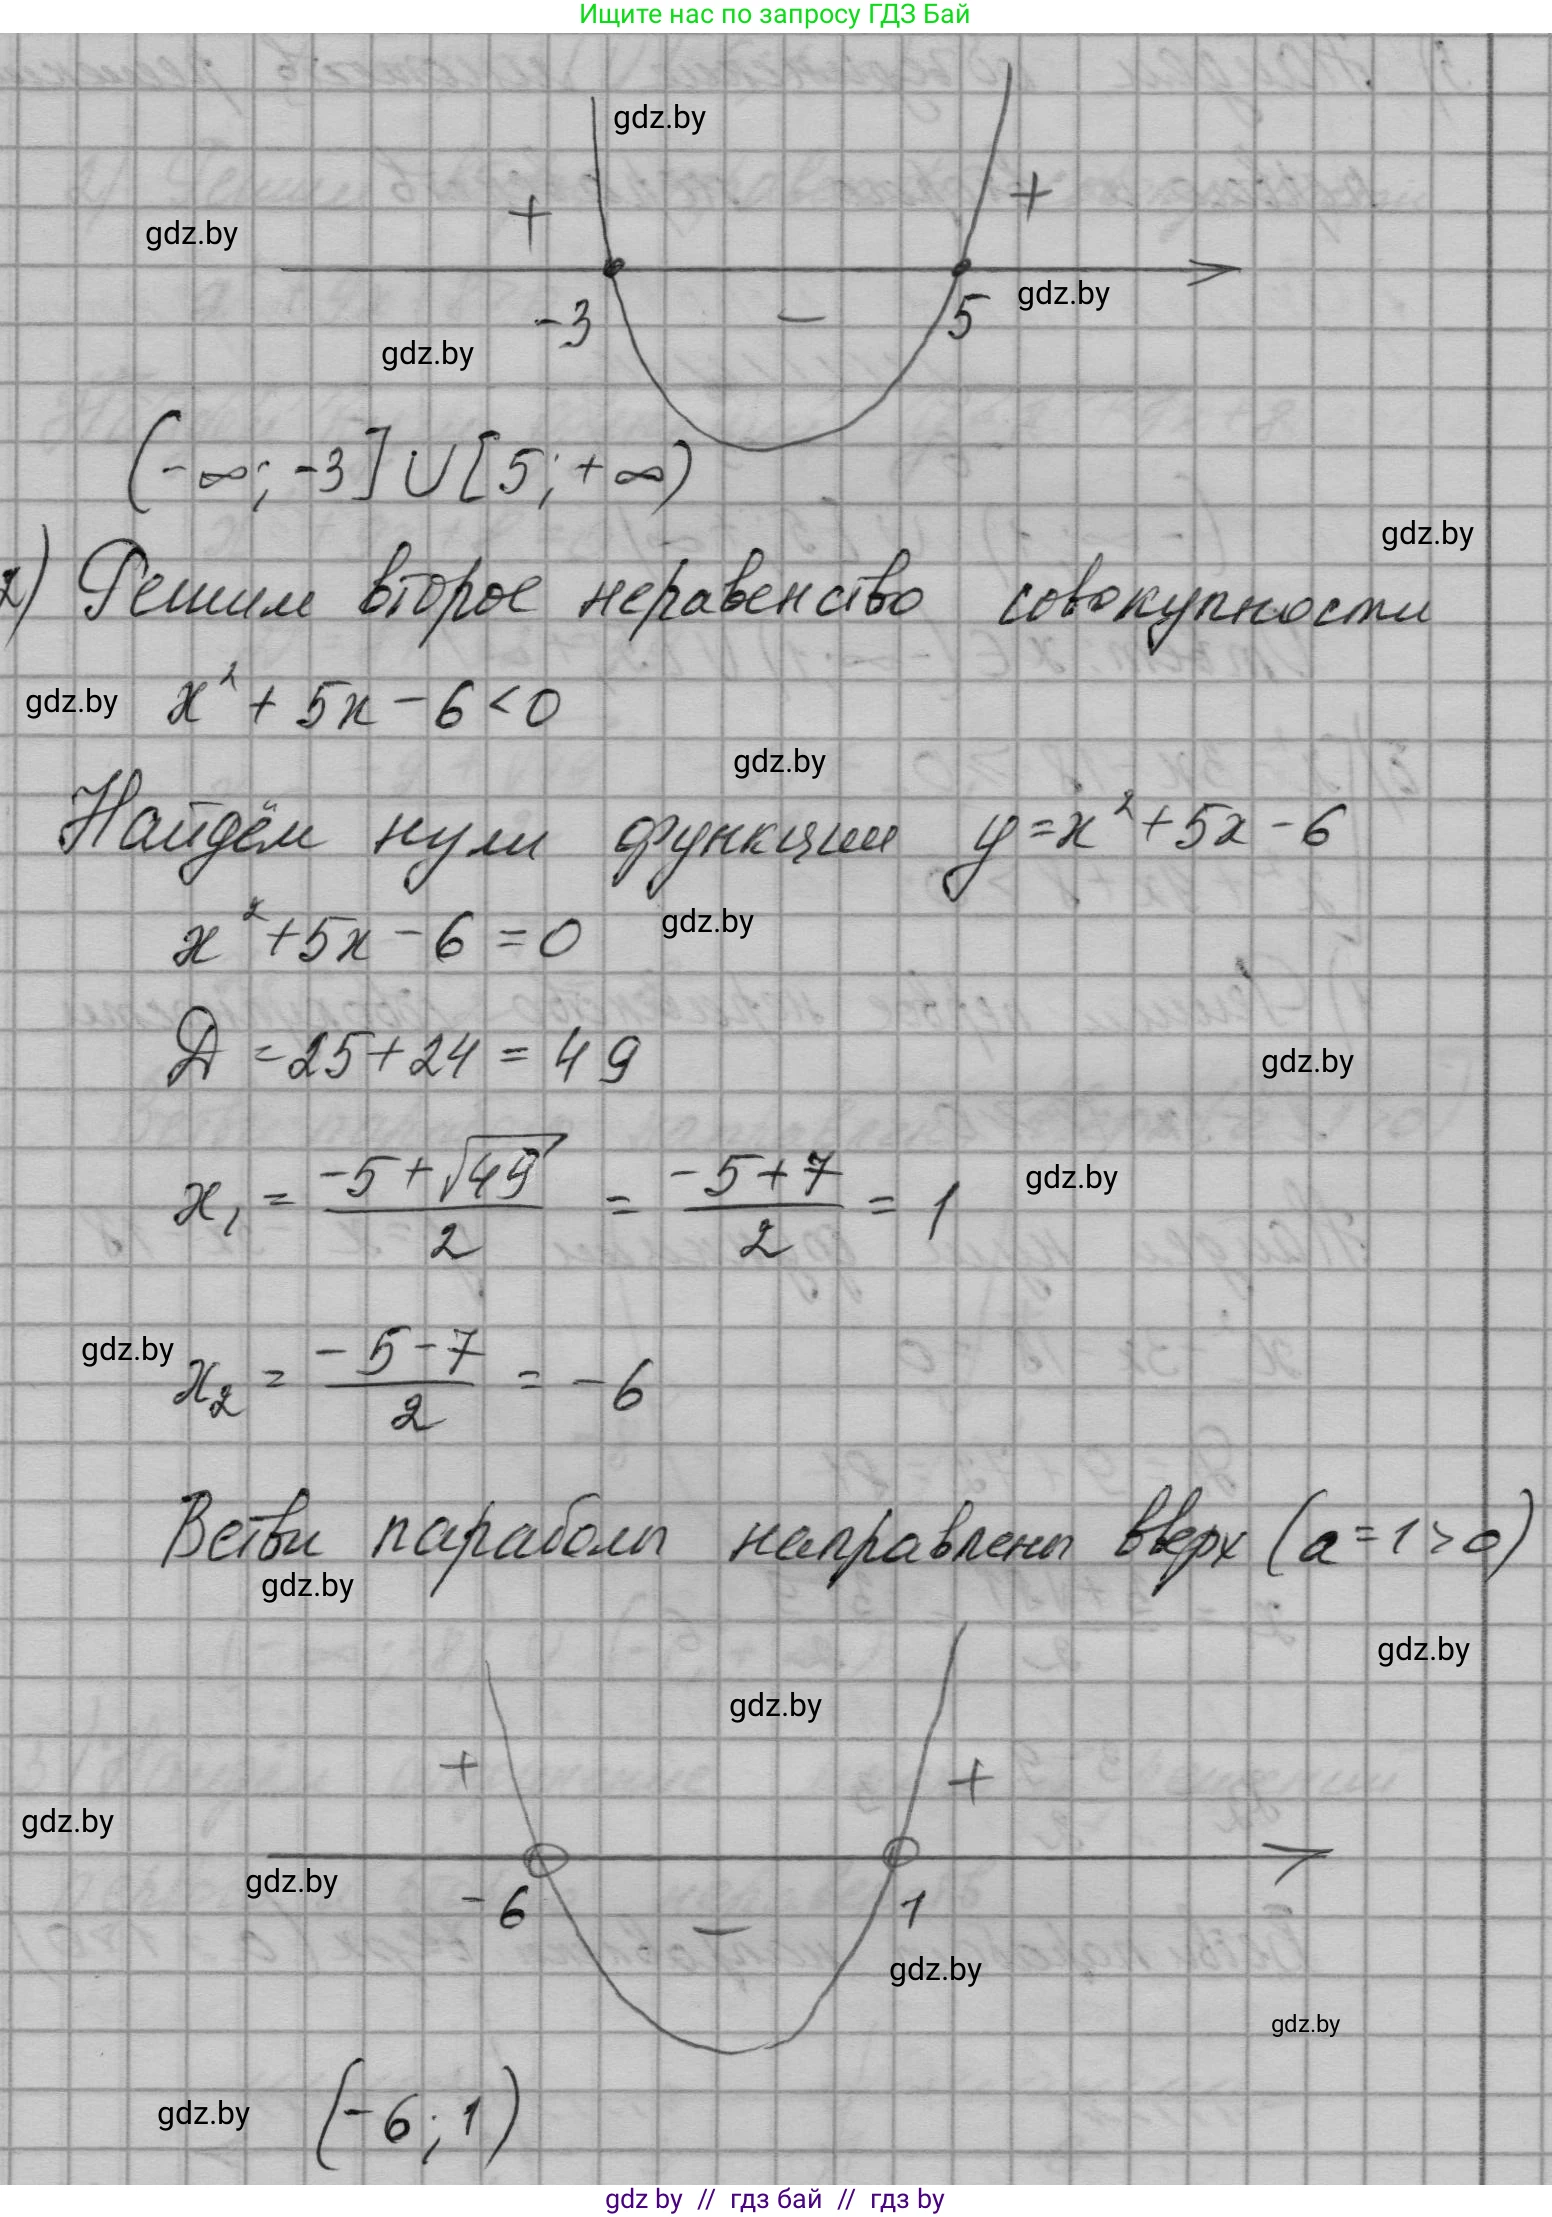 Ищите нас по запросу ГДЗ Бай
gdz.by
+ +
gdz.by
-3 - 5 gdz.by
gdz.by
(-∞; -3] ∪ [5; +∞)
gdz.by
2) Решим второе неравенство совокупности
gdz.by x² + 5x - 6 < 0
gdz.by
Найдём нули функции y = x² + 5x - 6
x² + 5x - 6 = 0 gdz.by
Д = 25 + 24 = 49
gdz.by
x₁ = (-5 + √49)/2 = (-5 + 7)/2 = 1 gdz.by
gdz.by x₂ = (-5 - 7)/2 = -6
Ветви параболы направлены вверх (a = 1 > 0)
gdz.by
gdz.by
gdz.by
+ +
gdz.by
gdz.by
-6 - 1
gdz.by
gdz.by
gdz.by (-6; 1)
gdz by // гдз бай // гдз by